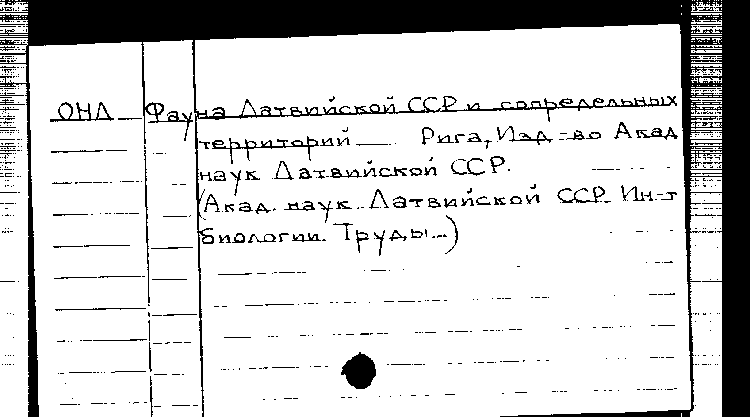 ОНЛ Фауна Латвийской ССР и сопредельных
территорий Рига, Изд-во Акад
наук Латвийской ССР.
(Акад. наук Латвийской ССР. Ин-т
биологии. Труды...)